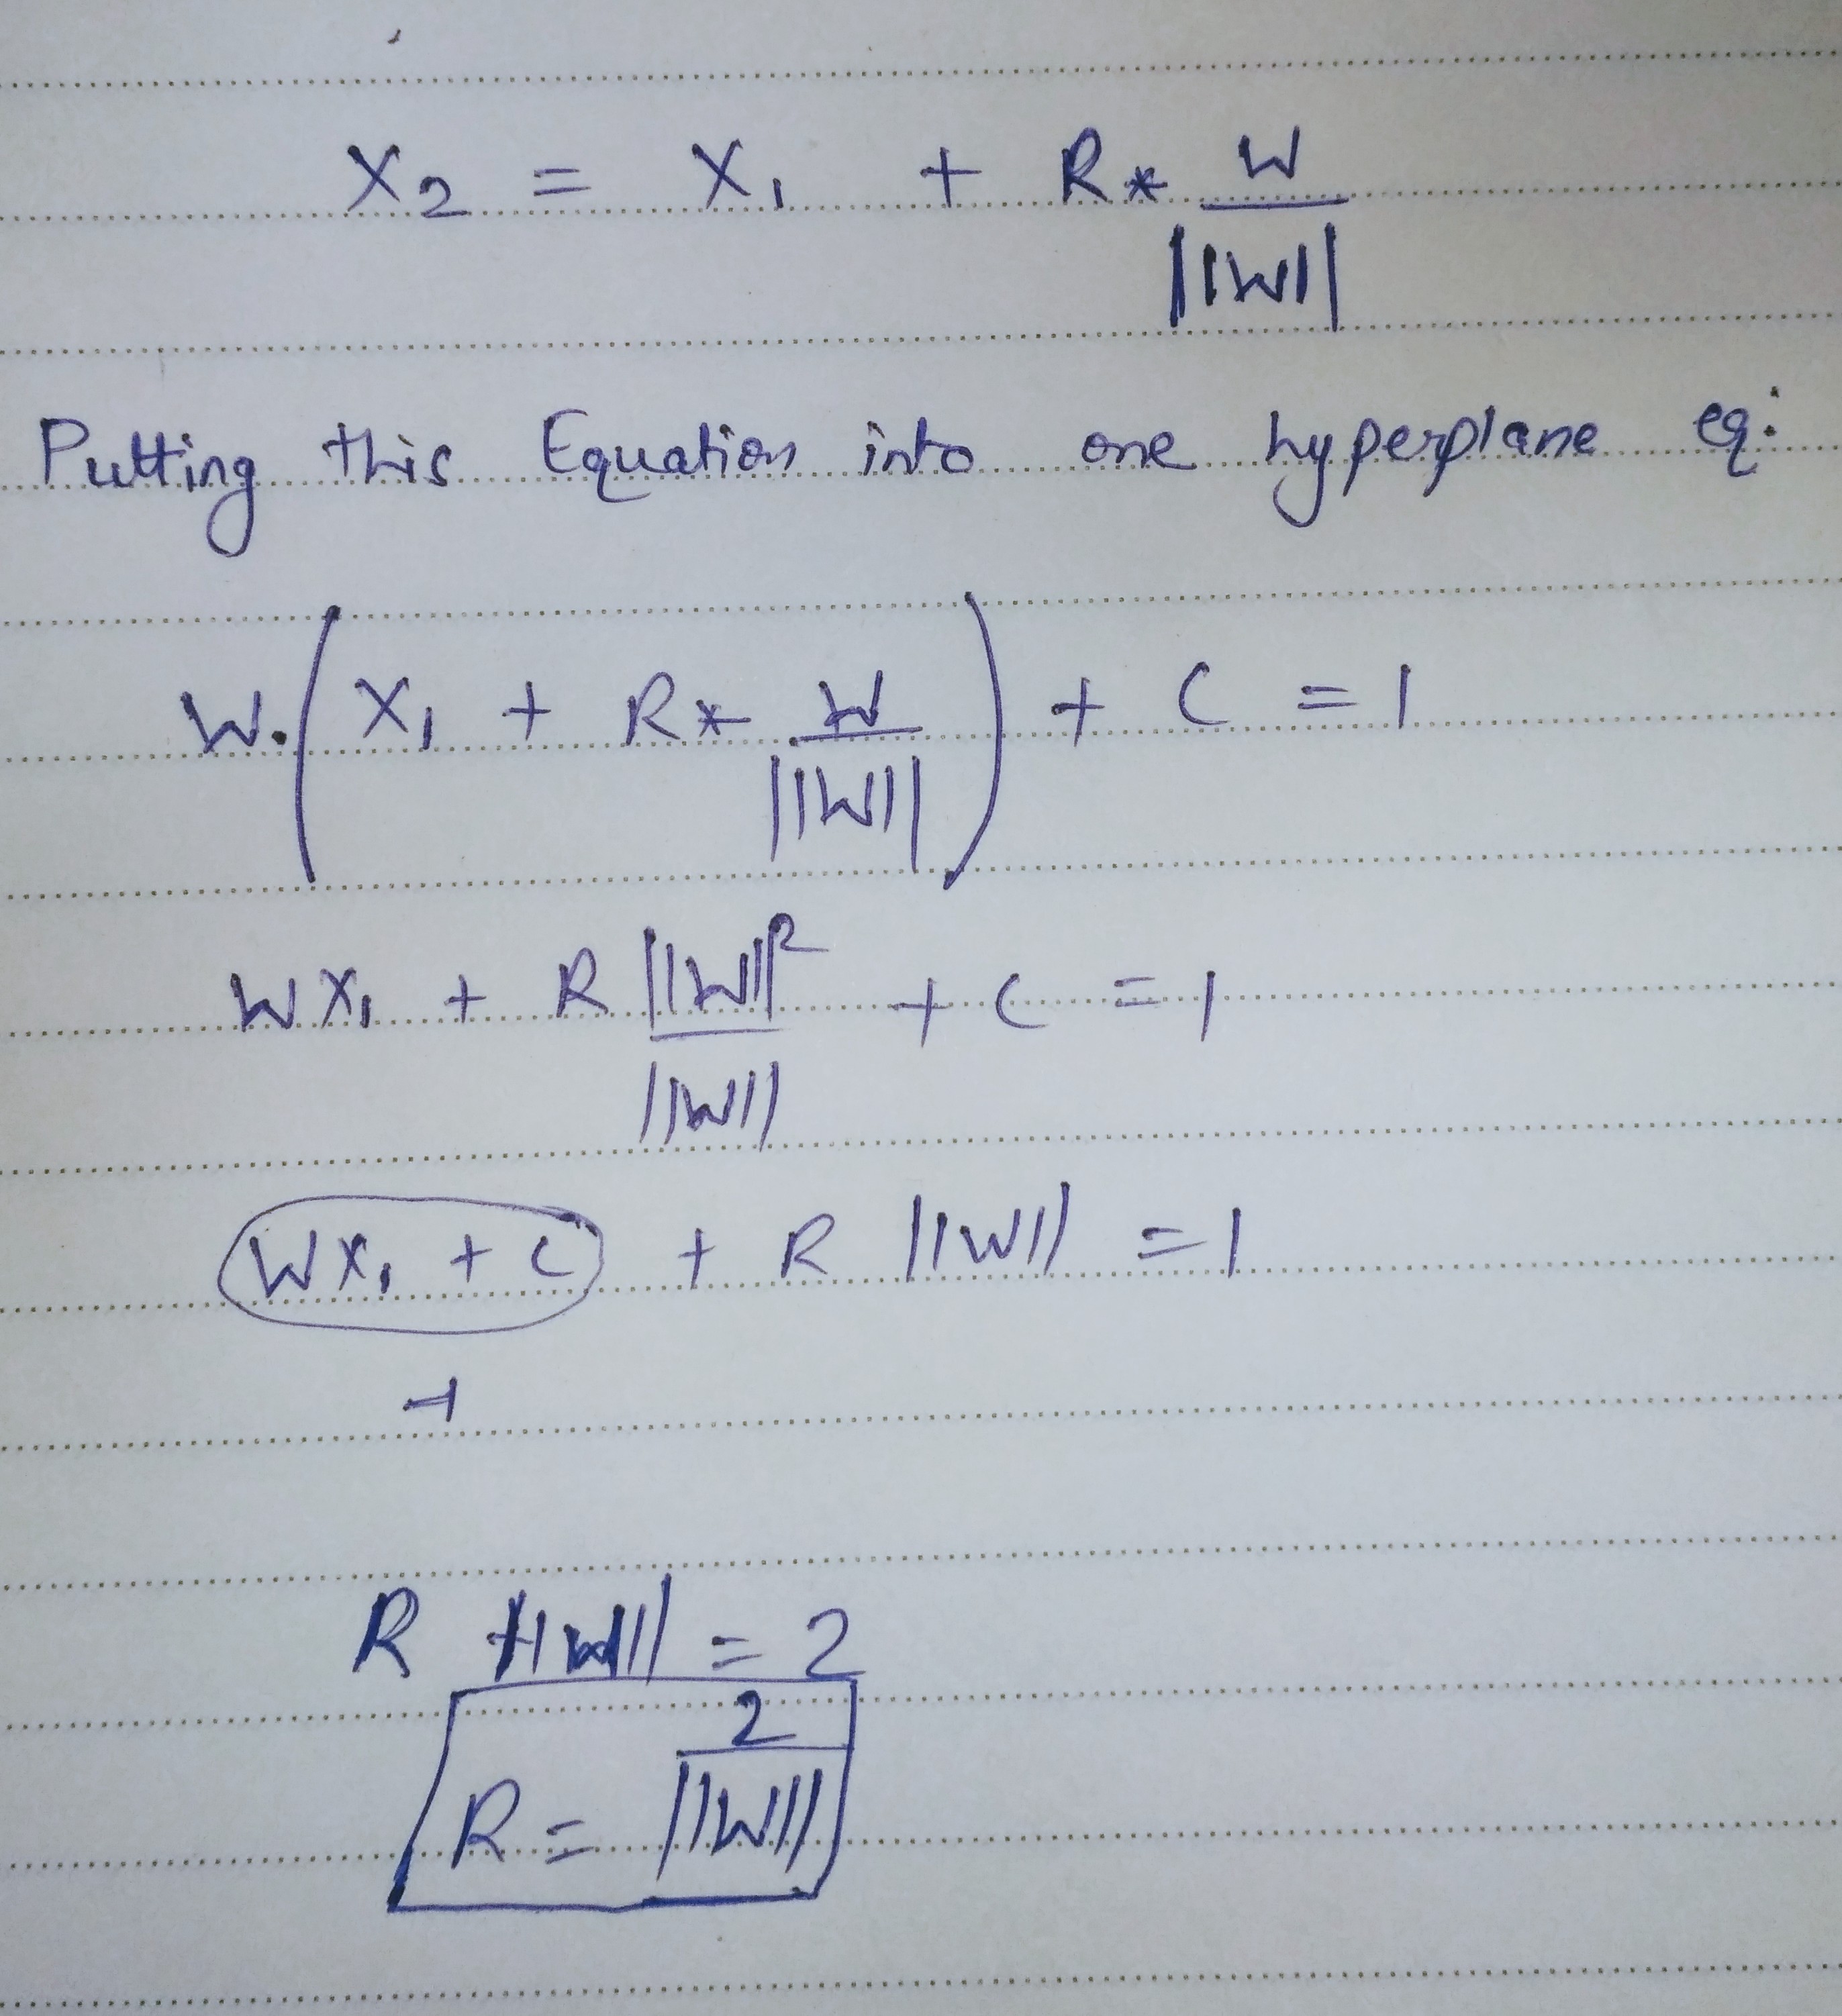 X₂ = X₁ + R * W / ||W||
Putting this Equation into one hyperplane eq:
W. ( X₁ + R * W / ||W|| ) + C = 1
W X₁ + R ||W||² / ||W|| + C = 1
W X₁ + C + R ||W|| = 1
-1
R ||W|| = 2
R = 2 / ||W||